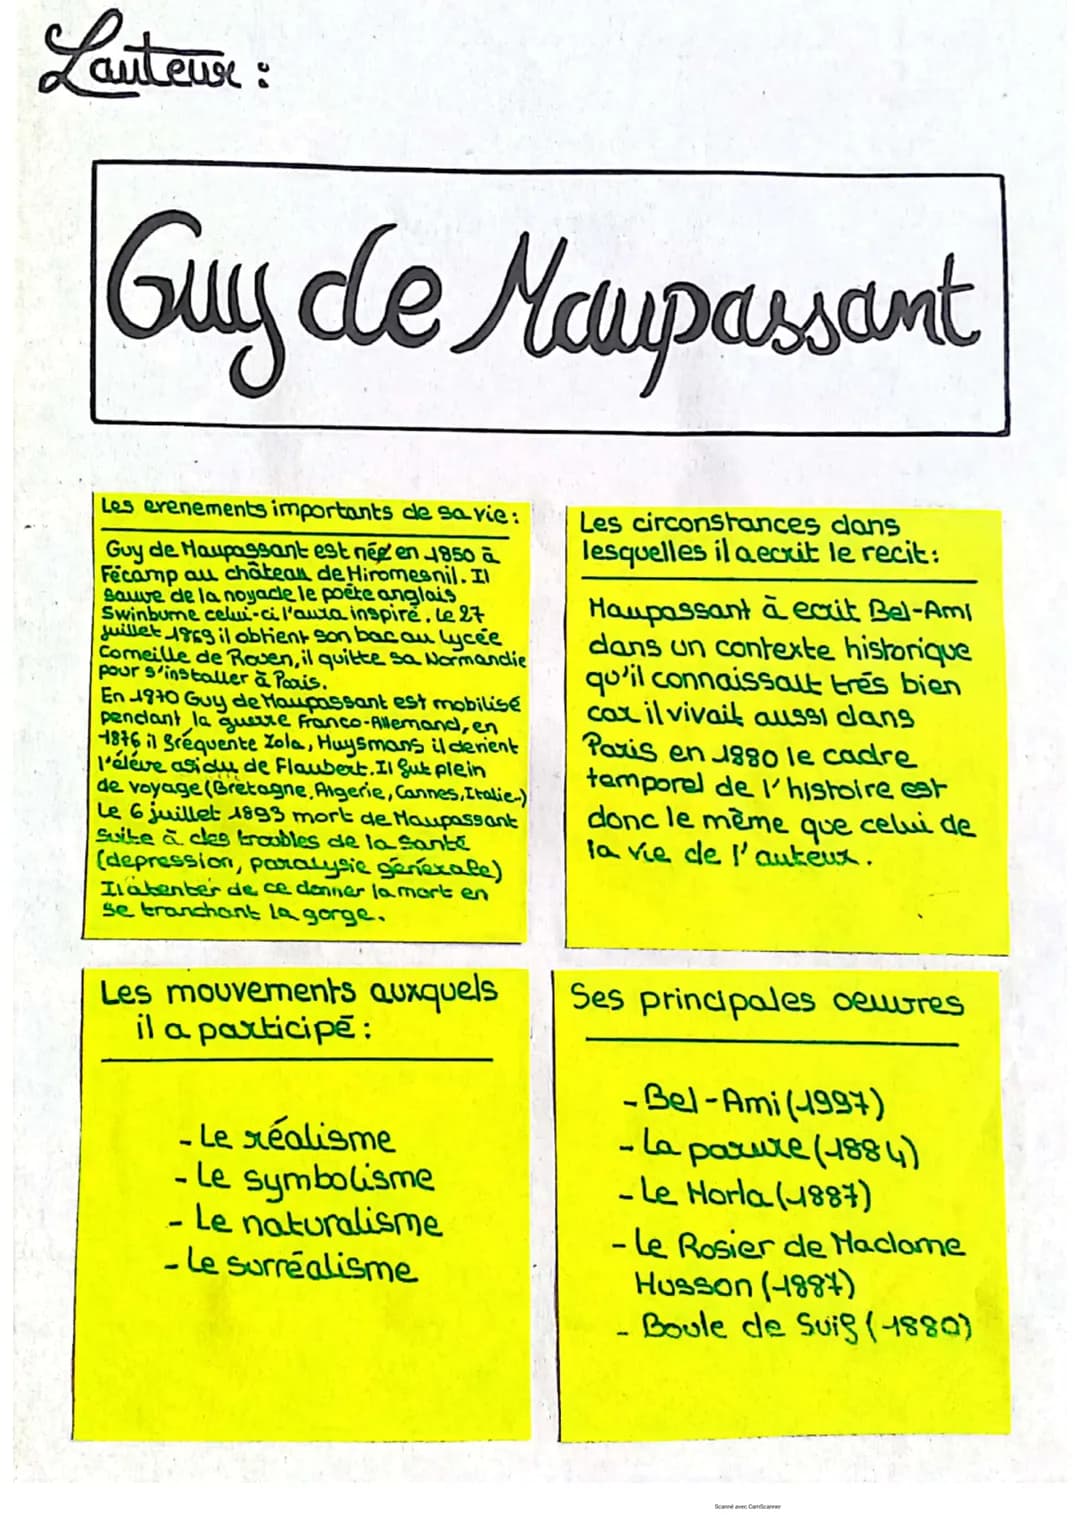 Lauteur :
Guy de Maupassant
Les evenements importants de sa vie :
Guy de Maupassant est né en 1850 à
Fécamp au château de Miromesnil. Il
sauve de la noyade le poète anglais
Swinburne celui-ci l'aura inspiré. Le 27
juillet 1869 il obtient son bac au lycée
Corneille de Rouen, il quitte sa Normandie
pour s'installer à Paris.
En 1970 Guy de Maupassant est mobilisé
pendant la guerre Franco-Allemand, en
1876 il fréquente Zola, Huysmans il devient
l'éléve asidu de Flaubert. Il fut plein
de voyage (Bretagne, Algerie, Cannes, Italie..)
Le 6 juillet 1893 mort de Maupassant
suite à des troubles de la santé
(depression, paralysie génerale)
Il àtenter de ce donner la mort en
se tranchant la gorge.
Les circonstances dans
lesquelles il a ecrit le recit :
Maupassant à ecrit Bel-Ami
dans un contexte historique
qu'il connaissait trés bien
car il vivait aussi dans
Paris en 1880 le cadre
temporel de l'histoire est
donc le même que celui de
la vie de l'auteur.
Les mouvements auxquels
il a participé :
- Le réalisme
- Le symbolisme
- Le naturalisme
- Le surréalisme
Ses principales oeuvres
- Bel-Ami (1997)
- La parure (1884)
- Le Horla (1887)
- Le Rosier de Madame
Husson (1887)
- Boule de Suif (1880)
Scanné avec CamScanner